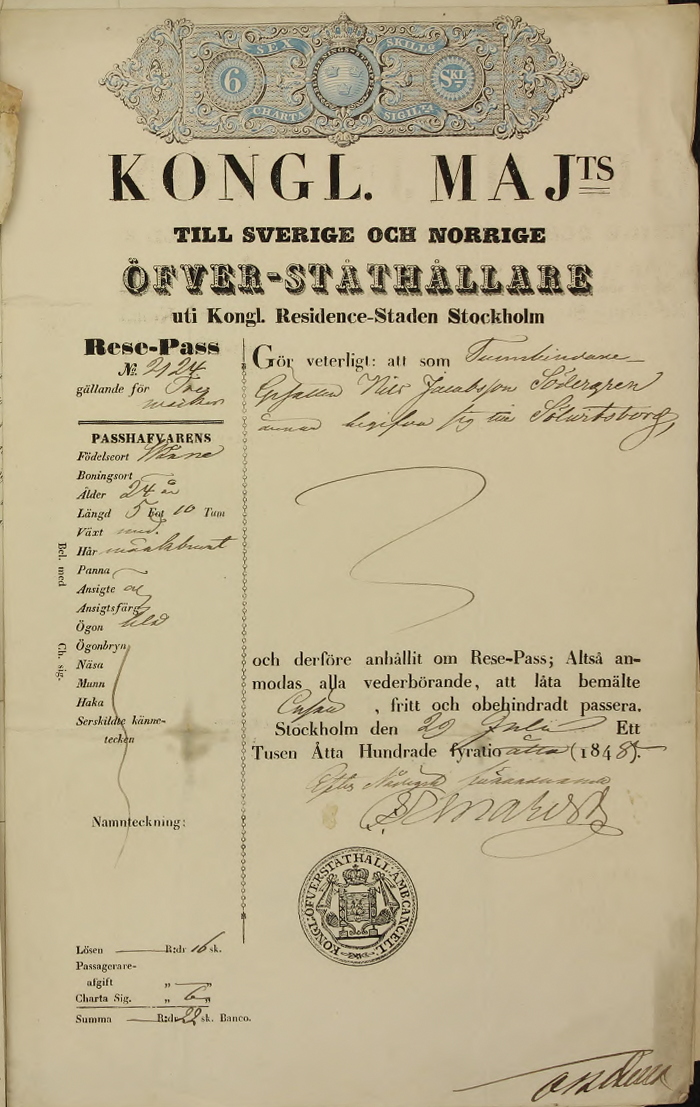 SEX SKILLG
6 SKL
CHARTA SIGILTA
KONGL. MAJTS
TILL SVERIGE OCH NORRIGE
ÖFVER-STÅTHÅLLARE
uti Kongl. Residence-Staden Stockholm
Rese-Pass
No. 2124
gällande för Tre
PASSHAFVARENS
Födelseort
Boningsort
Ålder 24 år
Längd 5 Fot 10 Tum
Växt med.
Hår mörkbrunt
Panna
Ansigte
Ansigtsfärg
Ögon blå
Ögonbryn
Näsa
Munn
Haka
Serskildte känne-
tecken
Bel. med
Ch. sig.
Namnteckning:
Lösen R:dr 16 sk.
Passagerare-
afgift " "
Charta Sig. " 6 "
Summa R:dr 22 sk. Banco.
Gör veterligt: att som Tunnbindare
Gesällen Nils Jacobsson Södergren
ärnar begifva sig till Sölvitsborg,
och derföre anhållit om Rese-Pass; Altså an-
modas alla vederbörande, att låta bemälte
, fritt och obehindradt passera.
Stockholm den 29 Juli Ett
Tusen Åtta Hundrade fyratioåtta (1848).
Efter Nådigst
KONGL: ÖFVERSTÅTHALL: AMB: CANCELL: